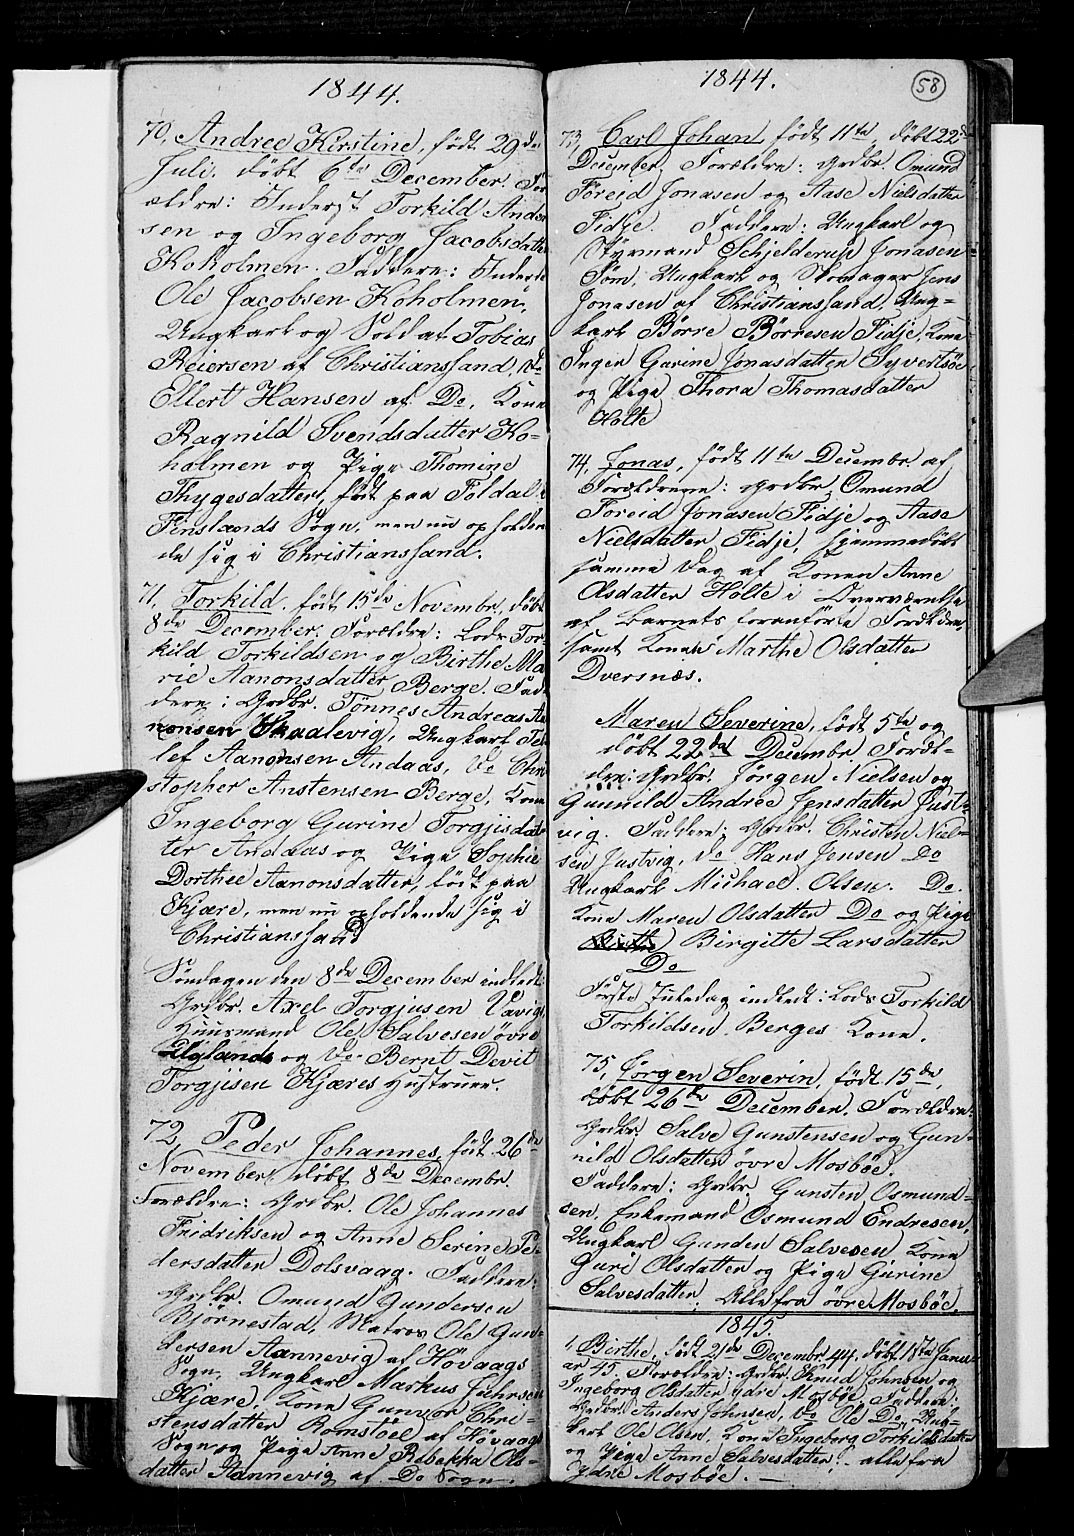 1844.
70, Andree Kirstine, født 29de
Juli, døbt 6te December. For
ældre: Inderst Torkild Ander
sen og Ingeborg Jacobsdatter
Koholmen. Faddere: Inderst
Ole Jacobsen Koholmen,
Ungkarl og Soldat Tobias
Reiersen af Christianssand, do
Ellert Hansen af Do, Kone
Ragnild Svendsdatter Ko-
holmen og Pige Thomine
Thygesdatter, født paa Foldal
Finslands Sogn, men nu opholden
de sig i Christianssand.
71, Torkild, født 15de Novembr, døbt
8de December. Forældre: Lods Tor-
kild Torkildsen og Birthe Ma
rie Aanonsdatter Berge. Fad
dere: Grdbr. Tønnes Andreas Aa
nonsen Skaalevig, Ungkarl Te
lef Aanonsen Andaas, Do Chri
stopher Anstensen Berge, Kone
Ingeborg Gurine Torgjusdat
ter Andaas og Pige Sophie
Dorthee Aanonsdatter, født paa
Kjære, men nu opholdende sig i
Christianssand
Søndagen den 8de December indledt:
Grdbr. Axel Torgjusen Vavigs
Huusmand Ole Salvesen øvre
Uglands og Do Bernt Devit
Torgjusen Kjæres Hustruer.
72, Peder Johannes, født 26de
November, døbt 8de Decembr.
Forældre: Grdbr. Ole Johannes
Fridriksen og Anne Serine Pe-
dersdatter Dolsvaag. Faddere:
Grdbr. Omund Gundersen
Bjørnestad, Matros Ole Gun-
dersen Aannevig af Høvaags
Sogn, Ungkarl Markus
Kjære, Kone Gunvor Chri-
stensdatter Romstøel af Høvaags
Sogn og Pige Anne Rebekka Ols-
datter Aannevig af Do Sogn.
1844.
58
73, Carl Johan, født 11te, døbt 22de
December. Forældre: Grdbr. Omund
Foreid Jonasen og Aase Nielsdatter
Fidje. Faddere: Ungkarl og
Styrmand Schjelderup Jonasen
Søm, Ungkarl og Skomager Jens
Jonasen af Christianssand, Ung-
karl Børre Børresen Fidje, Kone
Inger Gurine Jonasdatter Syvertsøe
og Pige Thora Thomasdatter
Holte
74, Jonas, født 11te Decembr. af
Forældrene: Grdbr. Omund
Foreid Jonasen Fidje og Aase
Nielsdatter Fidje, hjemmedøbt
samme Dag af Konen Anne
Olsdatter Holte i Overværelse
af Barnets foranførte Forældre,
samt Kone Marthe Olsdatter
Dversnæs.
Maren Severine, født 5te og
døbt 22de Decembr. Foræl-
dre: Grdbr. Jørgen Nielsen og
Gunnild Andree Jensdatter Just-
vig. Faddere: Grdbr. Christen Niel-
sen Justvig, Do Hans Jensen Do
Ungkarl Michael Olsen Do.
Kone Maren Olsdatter Do og Pige
Birgitte Larsdatter
Do
Første Juledag indledt: Lods Torkild
Torkildsen Berges Kone.
75, Jørgen Severin, født 15de,
døbt 26de December. Forældre:
Grdbr. Salve Gunstensen og Gun-
nild Olsdatter øvre Mosbøe.
Faddere: Grdbr. Gunsten Osmund-
sen, Enkemand Osmund Endresen,
Ungkarl Gunder Salvesen Kone
Guri Olsdatter og Pige Gurine
Salvesdatter. Alle fra øvre Mosbøe.
1845.
1, Birthe, født 21de Decembr. 44, døbt 1ste Janu-
ar 45. Forældre: Grdbr. Knud Johnsen og
Ingeborg Olsdatter ydre Mosbøe. Faddere:
Grdbr. Anders Johnsen, Do Ole Do, Ung-
karl Ole Olsen, Kone Ingeborg Torkildsdatter
og Pige Anne Salvesdatter: alle fra
ydre Mosbøe.